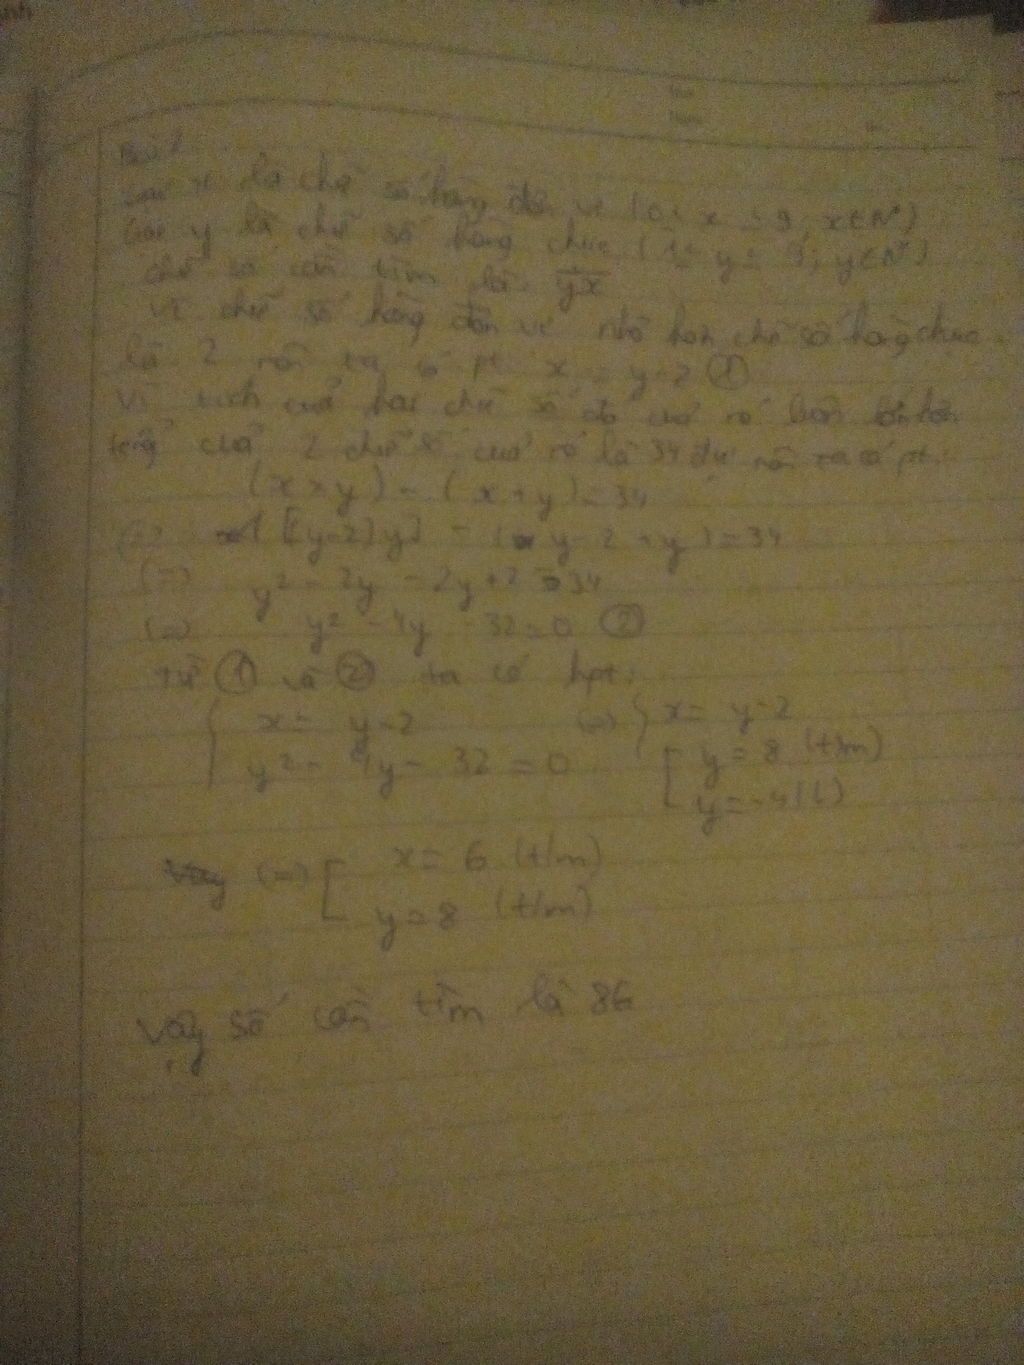 Bài 2
Gọi x là chữ số hàng đơn vị (0 ≤ x ≤ 9, x∈N*)
Gọi y là chữ số hàng chục (1 ≤ y ≤ 9; y∈N*)
chữ số cần tìm là yx
vì chữ số hàng đơn vị nhỏ hơn chữ số hàng chục
là 2 nên ta có pt x = y-2 ①
vì tích của hai chữ số đó của nó luôn lớn hơn
tổng của 2 chữ số của nó là 34 nên ta có pt:
(x × y) - (x + y) = 34
(=) [(y-2)y] - (y-2+y) = 34
(=) y² - 2y - 2y + 2 = 34
(=) y² - 4y - 32 = 0 ②
Từ ① và ② ta có hpt:
x = y-2 (=) x = y-2
y² - 4y - 32 = 0 y = 8 (t/m)
y = -4 (L)
(=) x = 6 (t/m)
y = 8 (t/m)
Vậy số cần tìm là 86